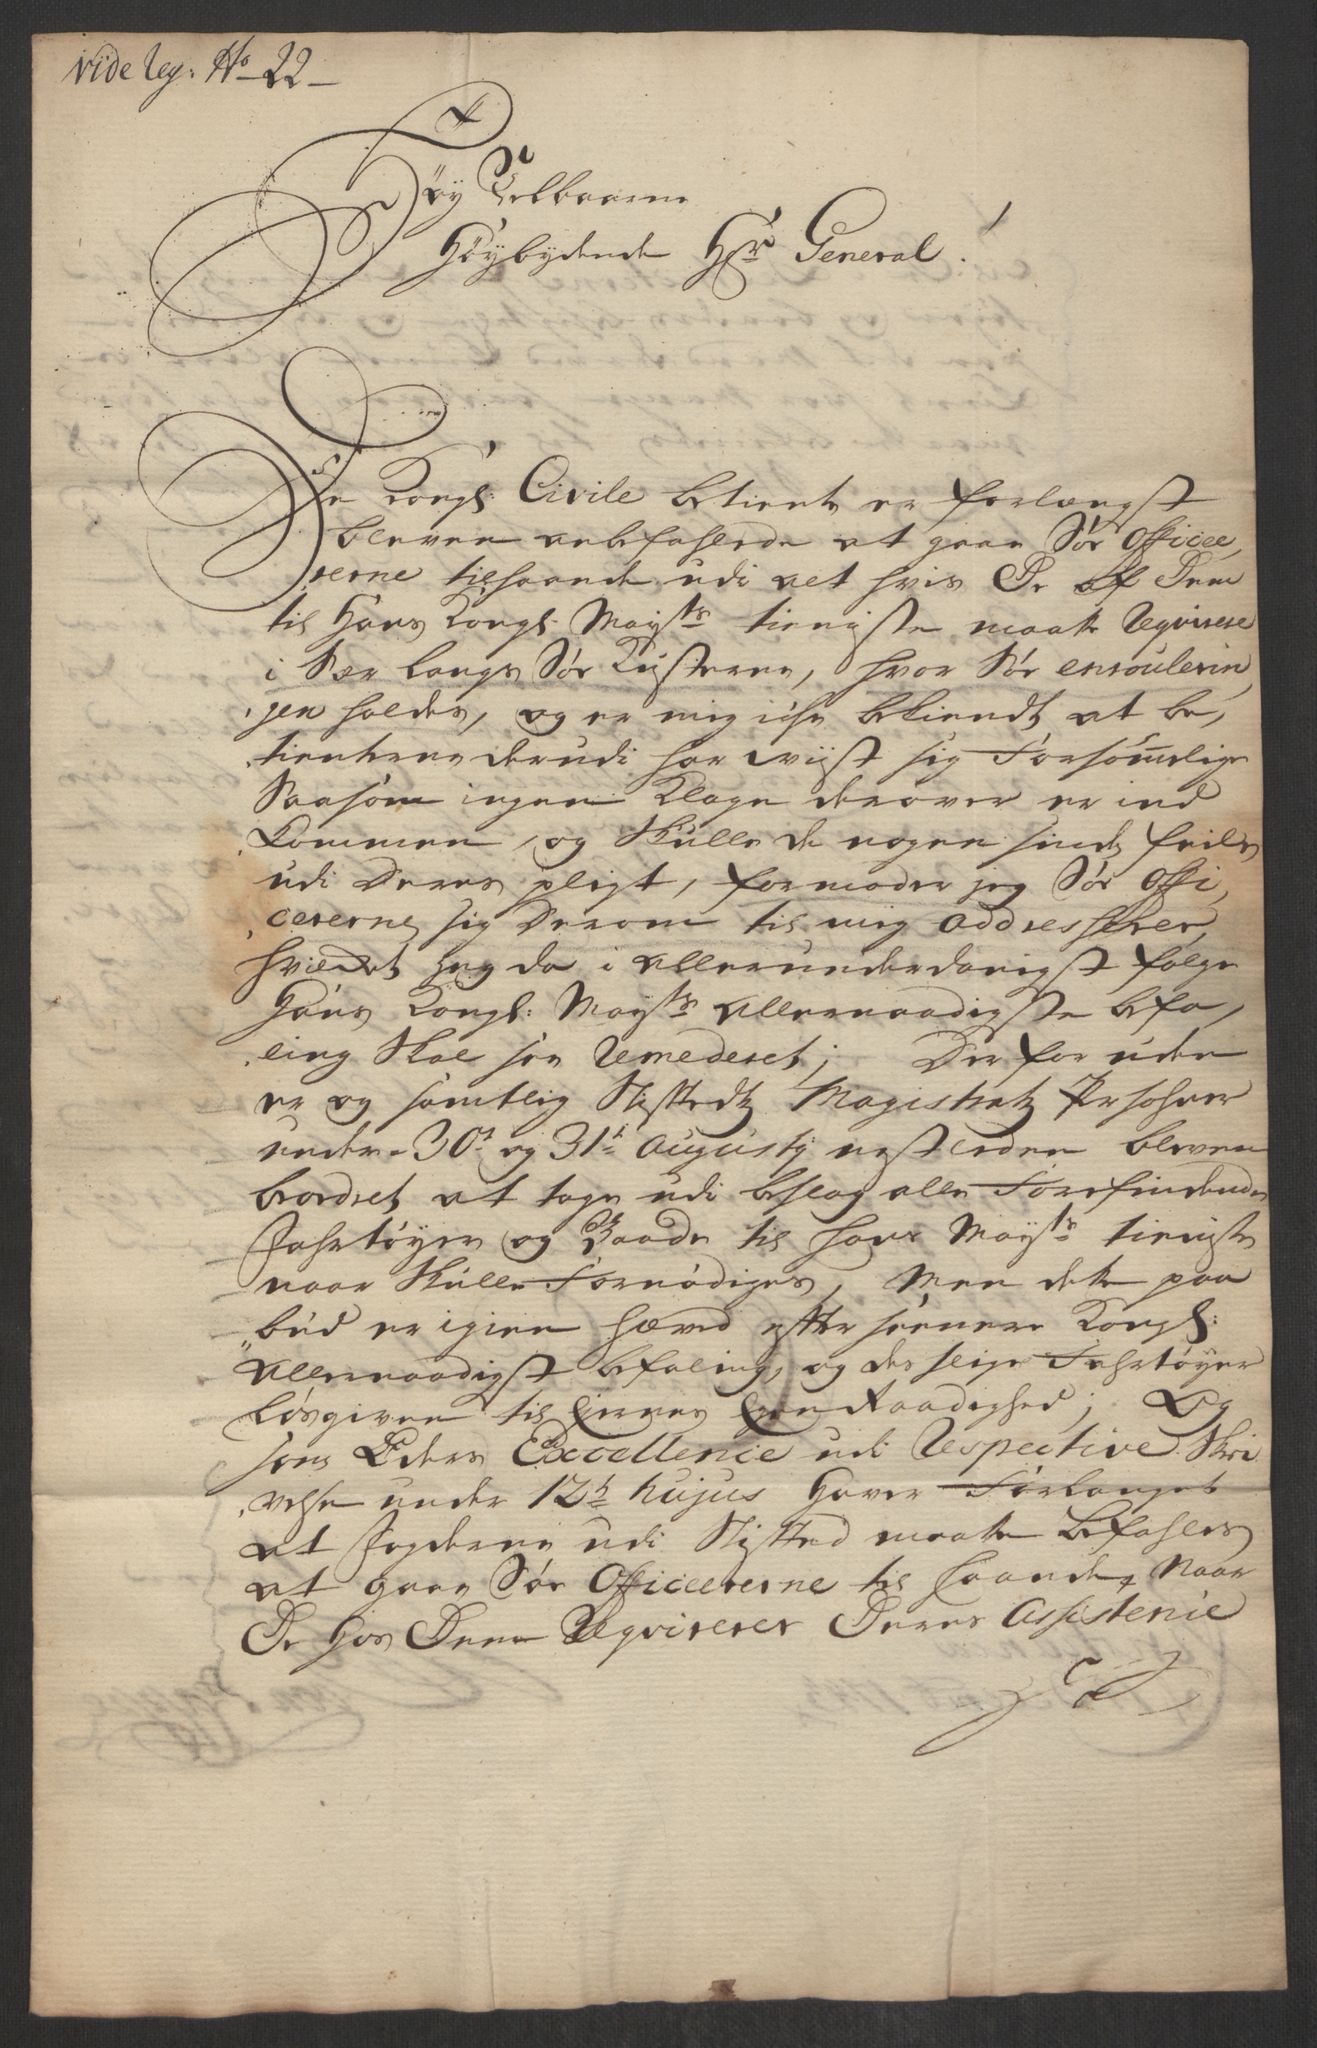 vide reg: No 22
Høy Velbaarne
Høybydende Hr General!
De Kongl: Civile betiente er forlængst
bleven anbefahlede at gaae Søe Officee,
rerne tilhaande udi alt hvis De af Dem
til Hans Kongl: Mayts tieniste maatte Reqvirere
i Sær langs Søe Kusterne, hvor Søe enroulerin,
gen holdes, og er mig icke bekiendt at be,
tienterne derudi har viist sig Forsømmelige
Saasom ingen Klage derover er ind
Kommen, og Skulle de nogen sinde feile
udi Deres pligt, formoder jeg Søe Offi,
cererne sig Derom til mig addresserer,
hvilcket jeg da i allerunderdanigst følge
Hans Kongl: Mayts allernaadigste befa,
ling Skal see Remederet; Der for uden
er og samtlig Stifftedtz Magistratz Persohner
under 30t og 31t Augustij nestleden bleven
beordret at tage udi beslag alle Forefindende
Fahrtøyer og Baade til hans Mayts tieniste
naar Skulle Fornødiges, Men dette paa
bud er igien hæved efter seenere Kongl:
allernaadigst befaling, og deslige Fahrtøyer
løsgiven til Eiernes Egen Raadighed; Og
som Eders Excellence udi Respective Skri
velse under 12te hujus haver Forlanget
at Fogderne udi Stifftet maatte befahles
at gaae Søe Officererne til haande, Naar
De hos Dem Reqvirerer Deres Assistence